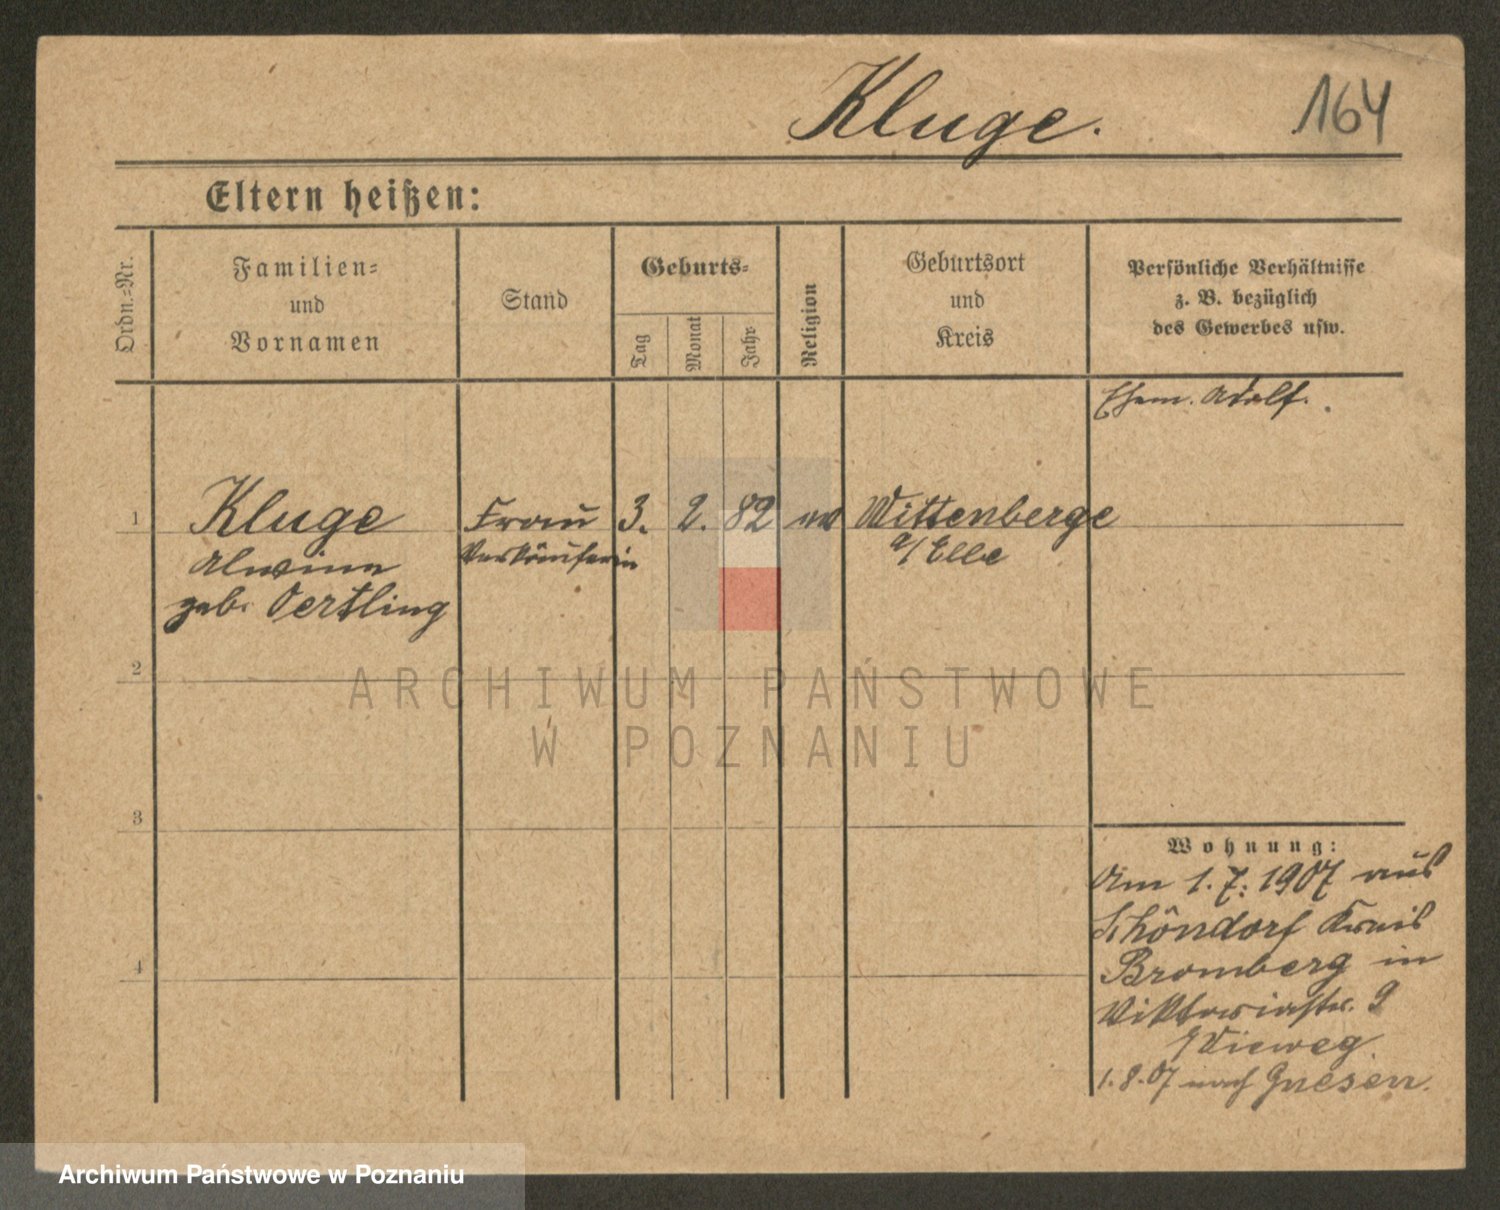 Kluge.
164
Eltern heißen:
Ordn.-Nr.
Familien-
und
Vornamen
Stand
Geburts-
Tag
Monat
Jahr
Religion
Geburtsort
und
Kreis
Persönliche Verhältnisse
z. B. bezüglich
des Gewerbes usw.
Ehem. Adolf.
1 Kluge Frau 3. 2. 82 ev Wittenberge
Alwine Verkäuferin a/ Elbe
geb. Oertling
2
ARCHIWUM PAŃSTWOWE
W POZNANIU
3
Wohnung:
Am 1. 7. 1907 aus
Schöndorf Kreis
4 Bromberg in
Viktoriastr. 9
b/Vieweg.
1.8.07 nach Gnesen.
Archiwum Państwowe w Poznaniu